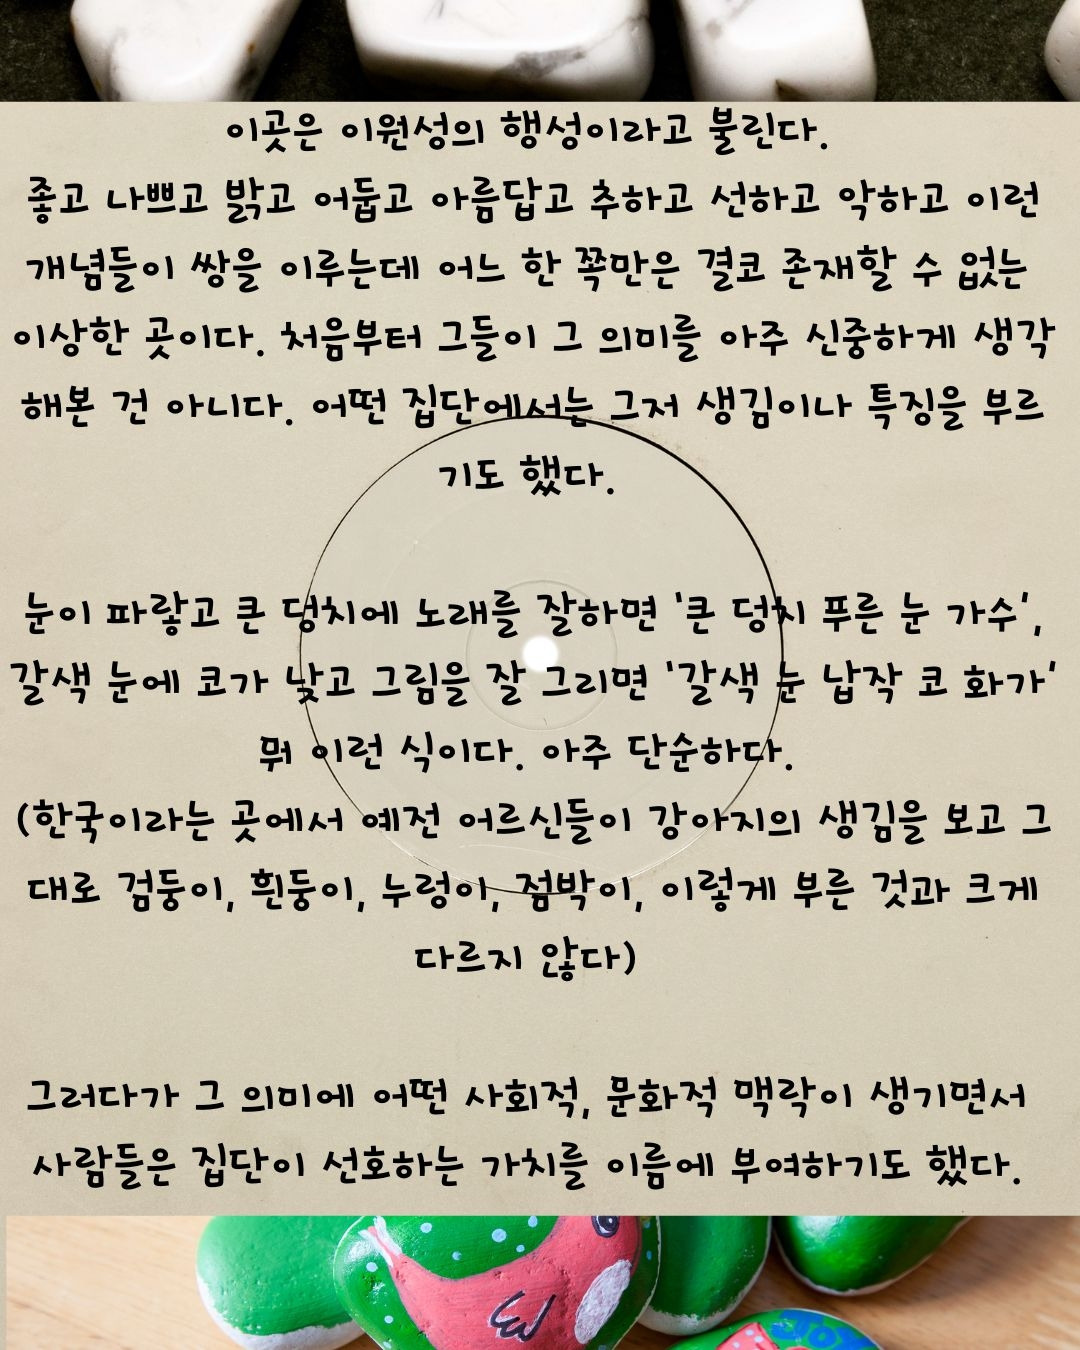 이곳은 이원성의 행성이라고 불린다.
좋고 나쁘고 밝고 어둡고 아름답고 추하고 선하고 악하고 이런
개념들이 쌍을 이루는데 어느 한 쪽만은 결코 존재할 수 없는
이상한 곳이다. 처음부터 그들이 그 의미를 아주 신중하게 생각
해본 건 아니다. 어떤 집단에서는 그저 생김이나 특징을 부르
기도 했다.
눈이 파랗고 큰 덩치에 노래를 잘하면 '큰 덩치 푸른 눈 가수',
갈색 눈에 코가 낮고 그림을 잘 그리면 '갈색 눈 납작 코 화가'
뭐 이런 식이다. 아주 단순하다.
(한국이라는 곳에서 예전 어르신들이 강아지의 생김을 보고 그
대로 검둥이, 흰둥이, 누렁이, 점박이, 이렇게 부른 것과 크게
다르지 않다)
그러다가 그 의미에 어떤 사회적, 문화적 맥락이 생기면서
사람들은 집단이 선호하는 가치를 이름에 부여하기도 했다.
JOY